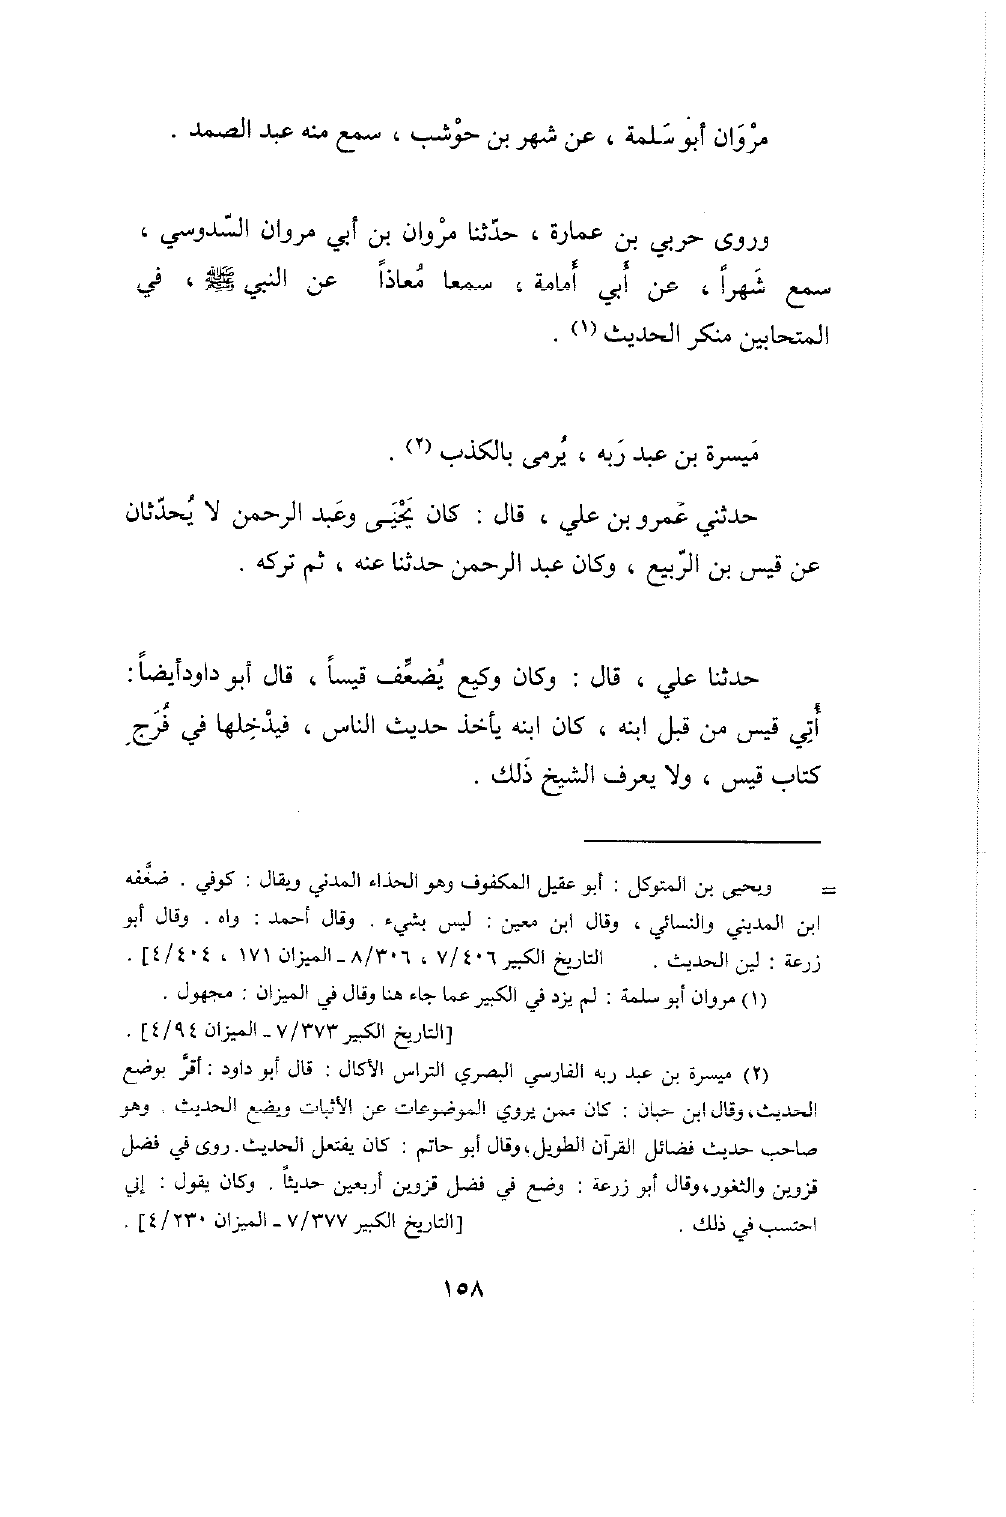 مرْوَان أبو سَلمة ، عن شهر بن حوْشب ، سمع منه عبد الصمد .
وروى حربي بن عمارة ، حدّثنا مرْوان بن أبي مروان السّدوسي ،
سمع شَهراً ، عن أَبي أُمامة ، سمعا مُعاذاً عن النبي ﷺ ، في
المتحابين منكر الحديث (١) .
مَيسرة بن عبد رَبه ، يُرمى بالكذب (٢) .
حدثني عَمرو بن علي ، قال : كان يَحْيَـى وعَبد الرحمن لا يُحدّثان
عن قيس بن الرّبيع ، وكان عبد الرحمن حدثنا عنه ، ثم تركه .
حدثنا علي ، قال : وكان وكيع يُضعِّف قيساً ، قال أبو داود أيضاً :
أُتِي قيس من قبل ابنه ، كان ابنه يأخذ حديث الناس ، فيدْخِلها في فُرَجِ
كتاب قيس ، ولا يعرف الشيخ ذَلك .
= ويحيى بن المتوكل : أبو عقيل المكفوف وهو الحذاء المدني ويقال : كوفي . ضعَّفه
ابن المديني والنسائي ، وقال ابن معين : ليس بشيء . وقال أحمد : واه . وقال أبو
زرعة : لين الحديث . التاريخ الكبير ٧/٤٠٦ ، ٨/٣٠٦ ـ الميزان ١٧١ ، ٤/٤٠٤] .
(١) مروان أبو سلمة : لم يزد في الكبير عما جاء هنا وقال في الميزان : مجهول .
[التاريخ الكبير ٧/٣٧٣ ـ الميزان ٤/٩٤] .
(٢) ميسرة بن عبد ربه الفارسي البصري التراس الأكال : قال أبو داود : أقرَّ بوضع
الحديث، وقال ابن حبان : كان ممن يروي الموضوعات عن الأثبات ويضع الحديث . وهو
صاحب حديث فضائل القرآن الطويل، وقال أبو حاتم : كان يفتعل الحديث. روى في فضل
قزوين والثغور، وقال أبو زرعة : وضع في فضل قزوين أربعين حديثاً . وكان يقول : إني
احتسب في ذلك . [التاريخ الكبير ٧/٣٧٧ ـ الميزان ٤/٢٣٠] .
١٥٨